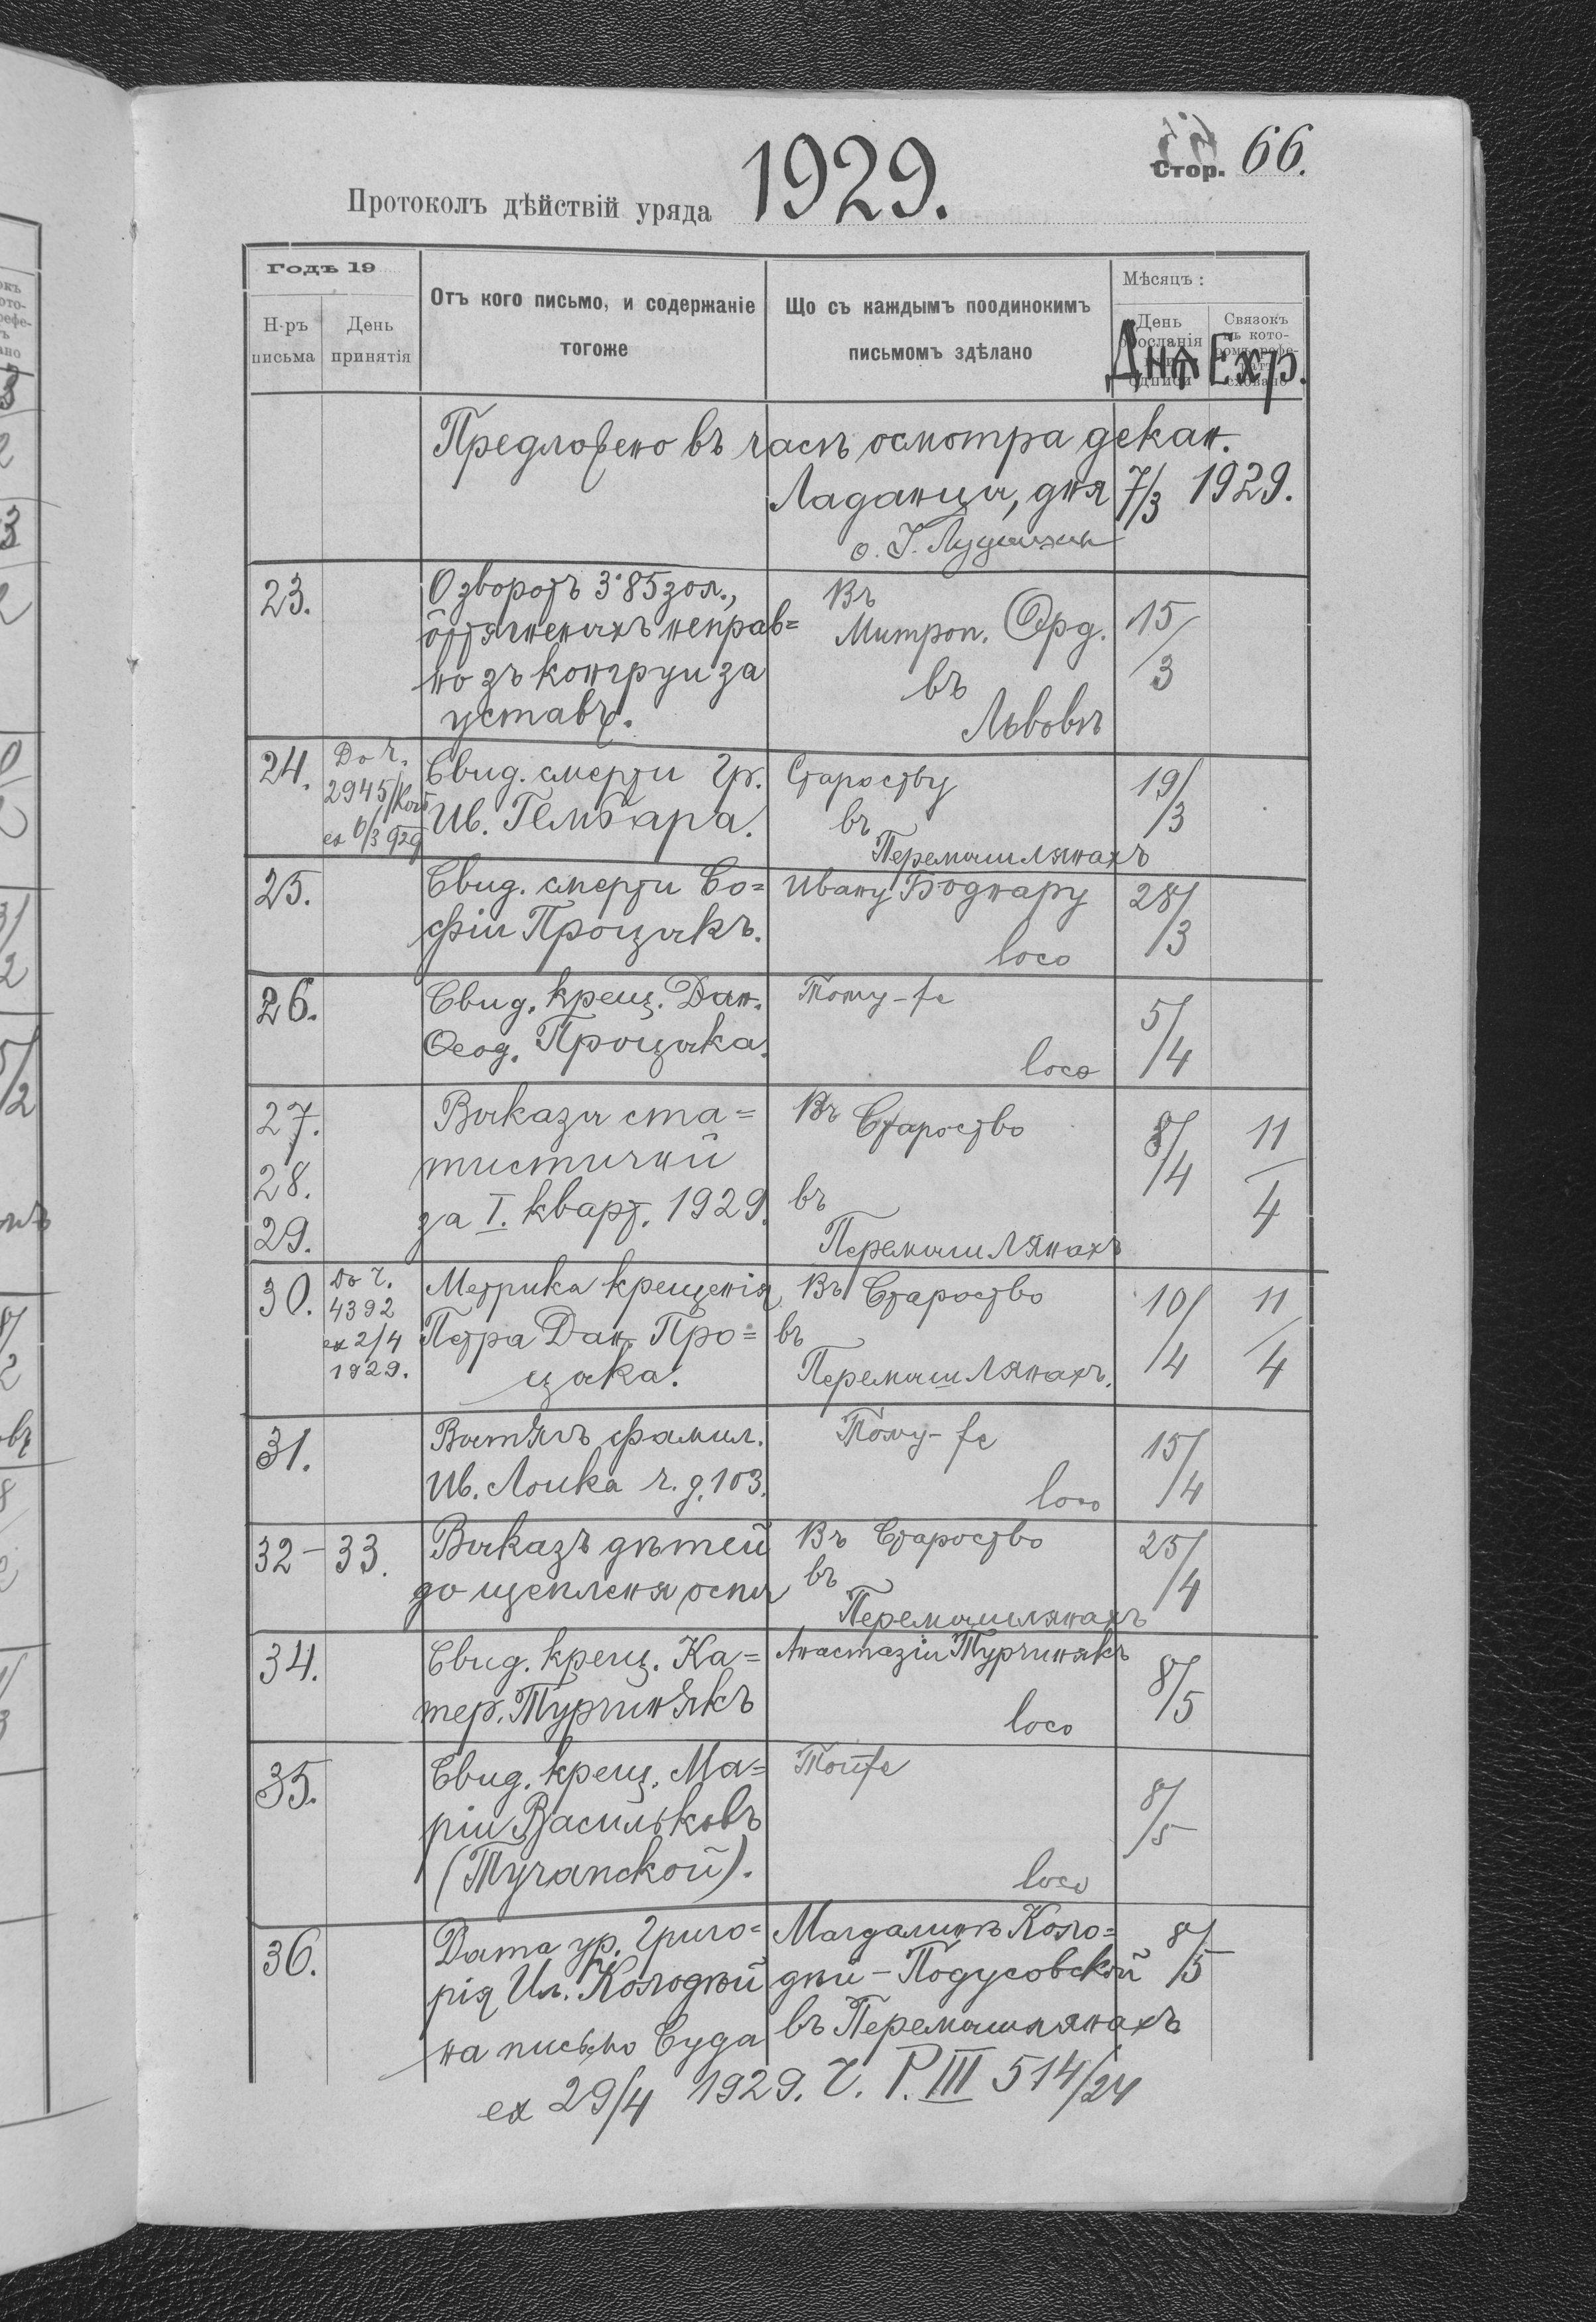 Стор. 66.
Протоколъ дѣйствій уряда 1929.
Годъ 19
Н-ръ письма
День принятія
Отъ кого письмо, и содержаніе тогоже
Що съ каждымъ поодинокимъ письмомъ здѣлано
Мѣсяцъ :
День
Связокъ
Дня Exp.
Предложено въ часѣ осмотра декан.
Ладанци, дня 7/3 1929.
23.
О зворотъ 3·85 зол.,
õттягненыхъ неправ=
но зъ конгруи за
уставъ.
Въ
Митроп. Орд.
въ
Львовѣ
15/3
24.
До ч.
2945/
ex 6/3 929
Свид. смерти Гр.
Ив. Гембара.
Староству
въ
Перемышлянахъ
19/3
25.
Свид. смерти Со=
фіи Процыкъ.
Ивану Боднару
loco
28/3
26.
Свид. крещ. Дан.
Ѳеод. Процыка.
Тому-же
loco
5/4
27.
28.
29.
Выказы ста=
тистичнй
за I. кварт. 1929.
Въ Староство
въ
Перемышлянахъ
8/4
11/4
30.
До ч.
4392
ex 2/4
1929.
Метрика крещенія
Петра Дан. Про=
цыка.
Въ Староство
въ
Перемышлянахъ.
10/4
11/4
31.
Вытягъ фамил.
Ив. Лоика ч. д. 103.
Тому-же
loco
15/4
32 – 33.
Выказъ дѣтей
до щепленя оспы
Въ Староство
въ
Перемышлянахъ
25/4
34.
Свид. крещ. Ка=
тер. Турчинякъ
Анастазіи Турчинякъ
loco
8/5
35.
Свид. крещ. Ма=
ріи Васильковъ
(Тучапской).
Тойже
loco
8/5
36.
Дата ур. Григо=
рія Ил. Колодѣй
на письмо Суда
ex 29/4 1929. Ч. P. III 514/24
Магдалинѣ Коло=
дѣй – Подусовской
въ Перемышлянахъ
8/5